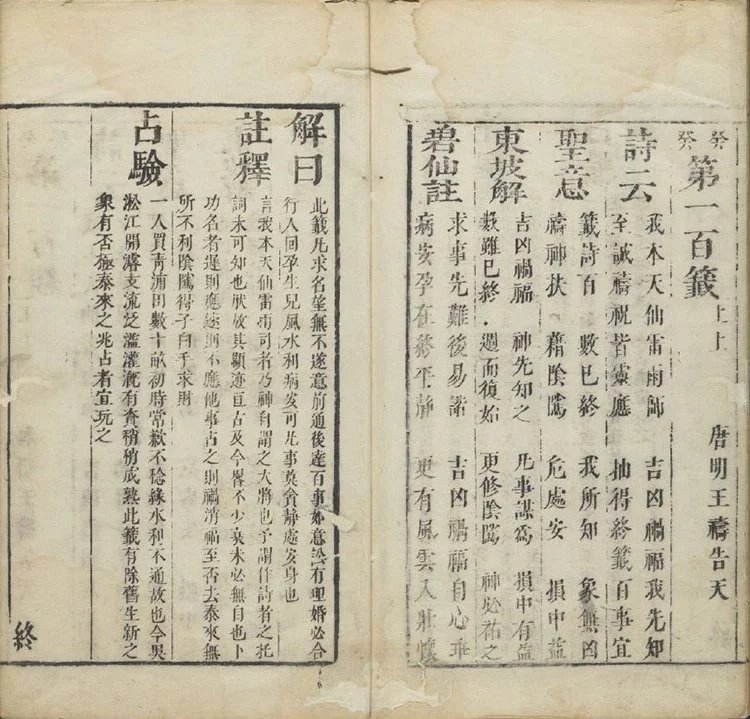 癸癸 第一百籤 上上 唐明王禱告天
詩云 我本天仙雷雨師 吉凶禍福我先知
至誠禱祝皆靈應 抽得終籤百事宜
聖意 籤詩百 數已終 我所知 象無凶
禱神扶 藉陰騭 危處安 損中益
東坡解 吉凶禍福 神先知之 凡事謀為 損中有益
數雖已終 週而復始 更修陰騭 神必祐之
碧仙註 求事先難後易諧 吉凶禍福自心垂
病安孕在終平靜 更有風雲入壯懷
解曰 此籤凡求名望無不遂意前通後達百事如意訟有理婚必合
行人回孕生兒風水利病安可凡事莫貪靜處安身也
註釋 言我本天仙雷雨司者乃神自謂之大將也予謂作詩者之托
詞未可知也厥故其顯迹亘古及今畧不少衰未必無自也卜
功名者遲則應速則不應他事占之則禍消福至否去泰來無
所不利陰騭得子白手求財
占驗 一人買青浦田數十畝初時常歉不稔緣水利不通故也今吳
淞江開濬支流泛濫灌溉有資稍稍成熟此籤有除舊生新之
象有否極泰來之兆占者宜玩之
終